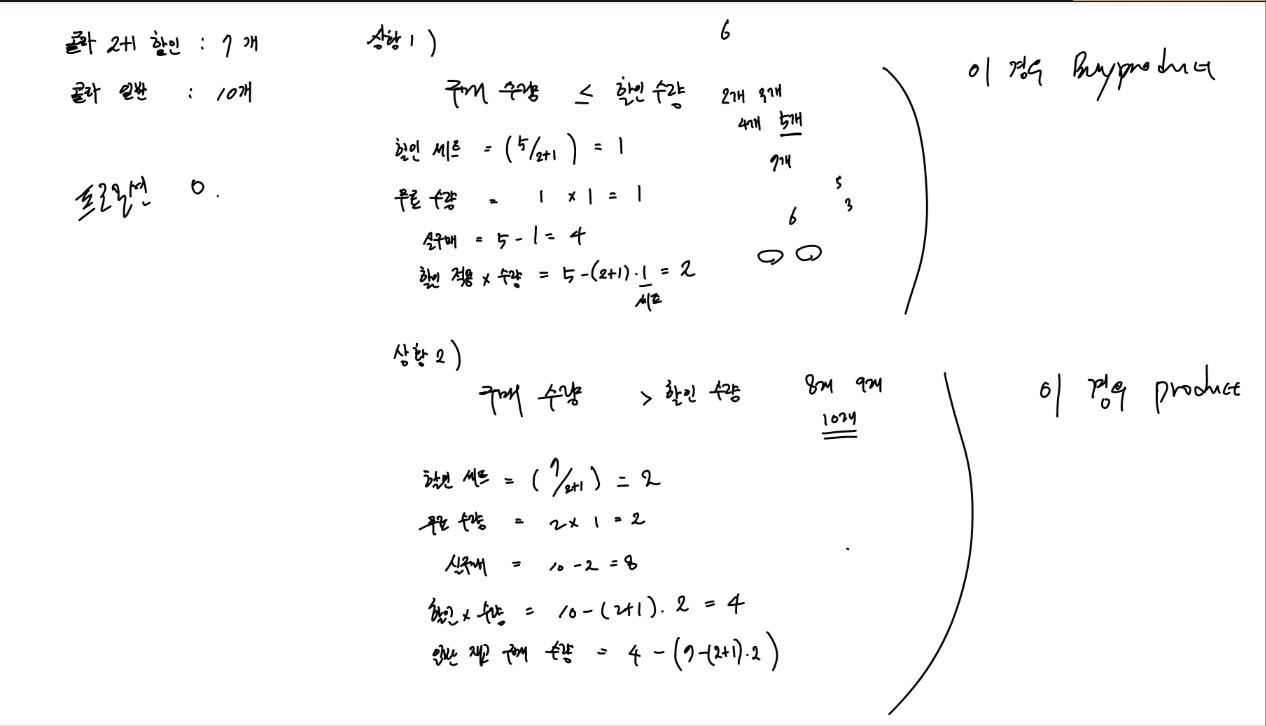 콜라 2+1 할인 : 7개
콜라 일반 : 10개
프로모션 O.
상황 1)
6
구매 수량 ≤ 할인 수량
2개 3개
4개 5개
7개
5
3
6
할인 세트 = (5/2+1) = 1
무료 수량 = 1 x 1 = 1
실구매 = 5 - 1 = 4
할인 적용 x 수량 = 5 - (2+1) · 1 = 2
세트
이 경우 Buyproduct
상황 2)
구매 수량 > 할인 수량
8개 9개
10개
할인 세트 = (7/2+1) = 2
무료 수량 = 2 x 1 = 2
실구매 = 10 - 2 = 8
할인 x 수량 = 10 - (2+1) . 2 = 4
일반 재고 구매 수량 = 4 - (7-(2+1)·2)
이 경우 product